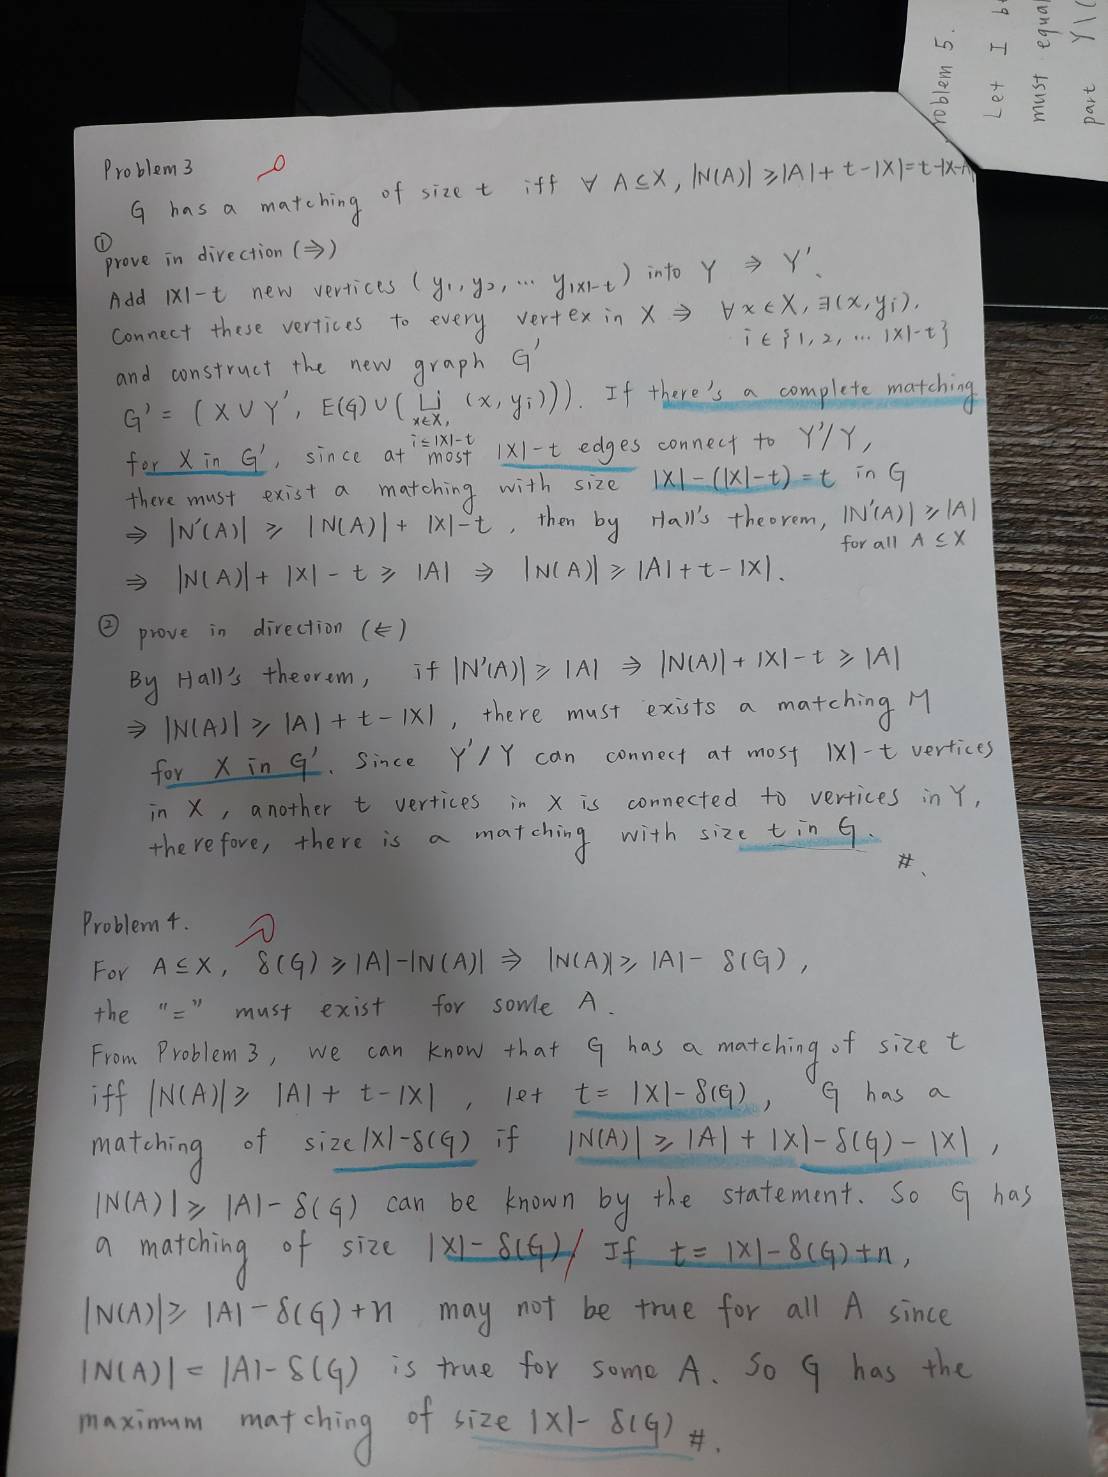 Problem 3
G has a matching of size t iff ∀ A⊆X, |N(A)| ≥ |A| + t - |X| = t - |X-A|
① prove in direction (⇒)
Add |X|-t new vertices (y₁, y₂, ... y|X|-t) into Y ⇒ Y'.
Connect these vertices to every vertex in X ⇒ ∀x∈X, ∃(x, yᵢ).
i∈{1, 2, ... |X|-t}
and construct the new graph G'
G' = (X∪Y', E(G)∪(⊔ (x, yᵢ))). If there's a complete matching
x∈X,
i≤|X|-t
for X in G', since at most |X|-t edges connect to Y'/Y,
there must exist a matching with size |X|-(|X|-t)=t in G
⇒ |N'(A)| ≥ |N(A)| + |X|-t, then by Hall's theorem, |N'(A)| ≥ |A|
for all A⊆X
⇒ |N(A)| + |X| - t ≥ |A| ⇒ |N(A)| ≥ |A| + t - |X|.
② prove in direction (⇐)
By Hall's theorem, if |N'(A)| ≥ |A| ⇒ |N(A)| + |X| - t ≥ |A|
⇒ |N(A)| ≥ |A| + t - |X|, there must exists a matching M
for X in G'. Since Y'/Y can connect at most |X|-t vertices
in X, another t vertices in X is connected to vertices in Y,
therefore, there is a matching with size t in G.
#.
Problem 4.
For A⊆X, δ(G) ≥ |A|-|N(A)| ⇒ |N(A)| ≥ |A| - δ(G),
the "=" must exist for some A.
From Problem 3, we can know that G has a matching of size t
iff |N(A)| ≥ |A| + t - |X|, let t = |X|-δ(G), G has a
matching of size |X|-δ(G) if |N(A)| ≥ |A| + |X|-δ(G)-|X|,
|N(A)| ≥ |A| - δ(G) can be known by the statement. So G has
a matching of size |X|-δ(G)/ If t = |X|-δ(G)+n,
|N(A)| ≥ |A| - δ(G)+n may not be true for all A since
|N(A)| = |A| - δ(G) is true for some A. So G has the
maximum matching of size |X|- δ(G) #.
roblem 5.
Let I b
must equal
part Y\(